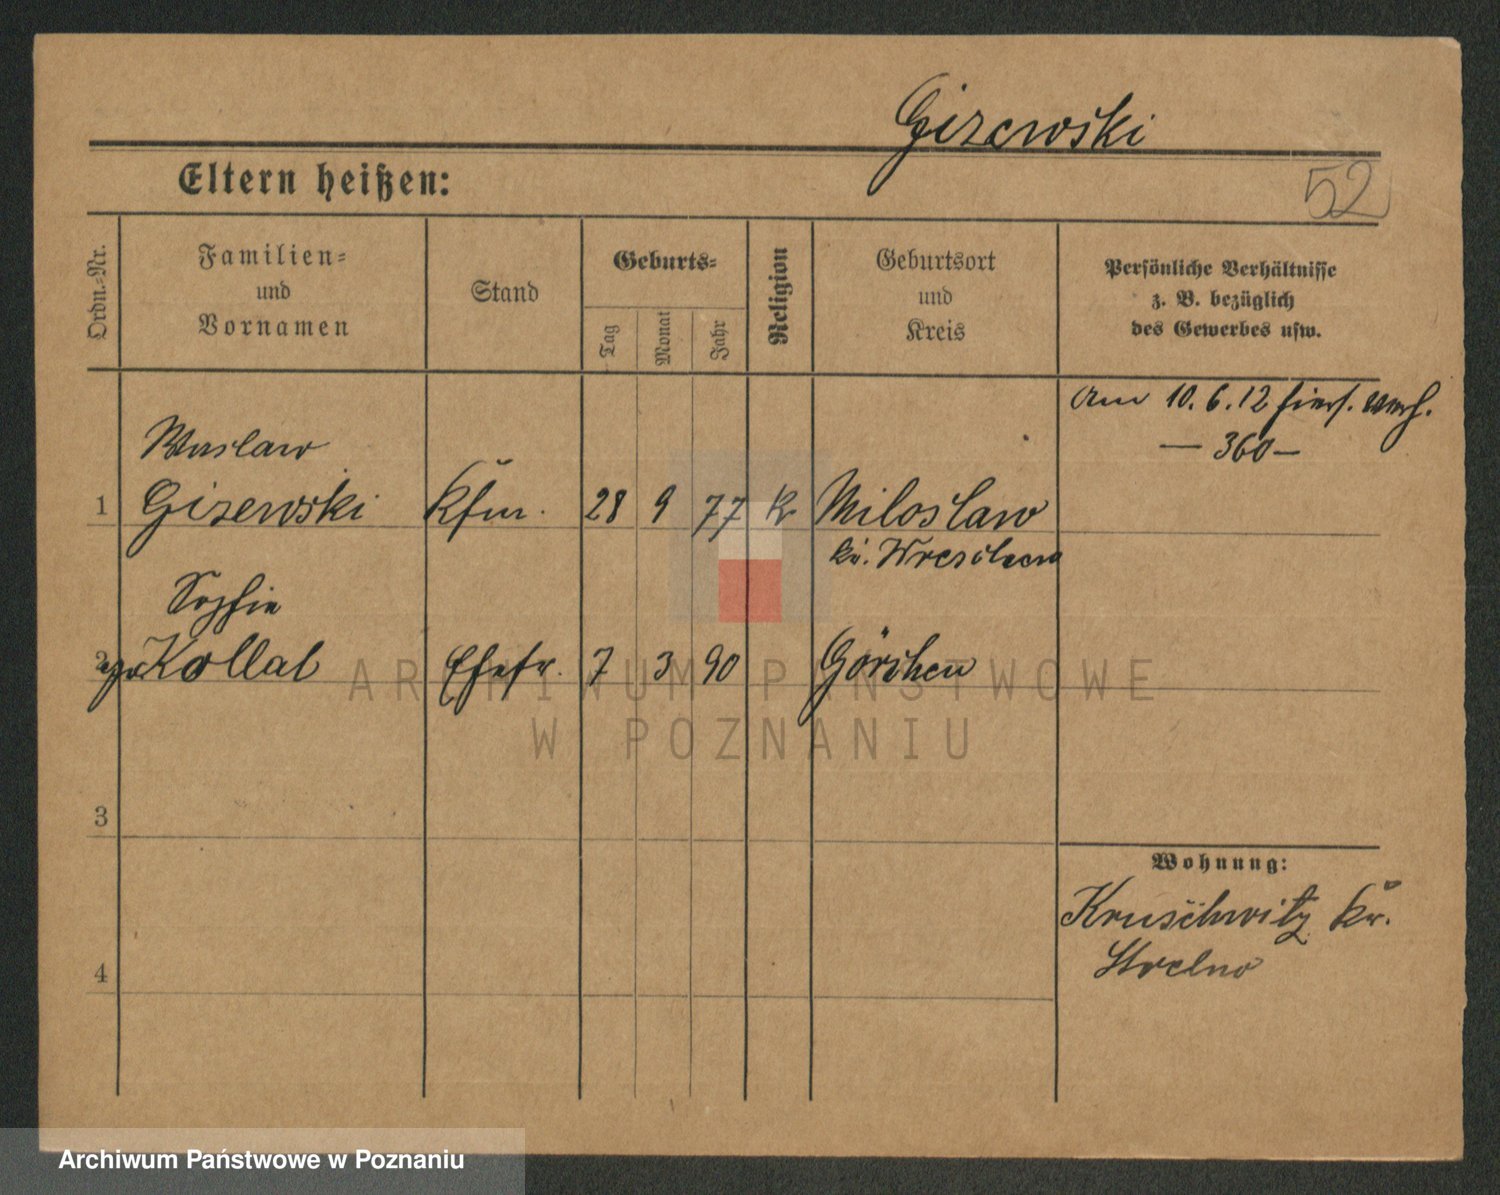 Gizewski
Eltern heißen:
52
Ordn.-Nr.
Familien-
und
Vornamen
Stand
Geburts-
Tag
Monat
Jahr
Religion
Geburtsort
und
Kreis
Persönliche Verhältnisse
z. B. bezüglich
des Gewerbes usw.
Am 10.6.12 hiers. verh.
— 360 —
Waslaw
1 Gizewski Kfm. 28 9 77 k Miloslaw
kr. Wreschen
Sophie
2 geb Kollat Ehefr. 7 3 90 Görchen
3
4
Wohnung:
Kruschwitz Kr.
Strelno
ARCHIWUM PAŃSTWOWE
W POZNANIU
Archiwum Państwowe w Poznaniu